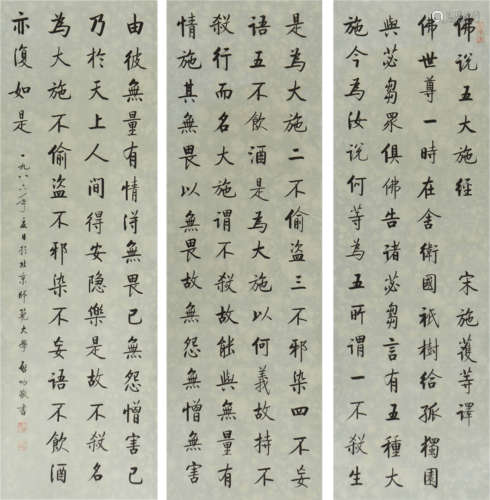 佛說五大施經　宋施護等譯
佛世尊一時在舍衛國祇樹給孤獨園
與苾芻眾俱佛告諸苾芻言有五種大
施今為汝說何等為五所謂一不殺生
是為大施二不偷盜三不邪染四不妄
語五不飲酒是為大施以何義故持不
殺行而名大施謂不殺故能與無量有
情施其無畏以無畏故無怨憎無害
由彼無量有情得無畏已無怨憎害已
乃於天上人間得安隱樂是故不殺名
為大施不偷盜不邪染不妄語不飲酒
亦復如是
一九八六年夏日於北京師範大學 啟功敬書